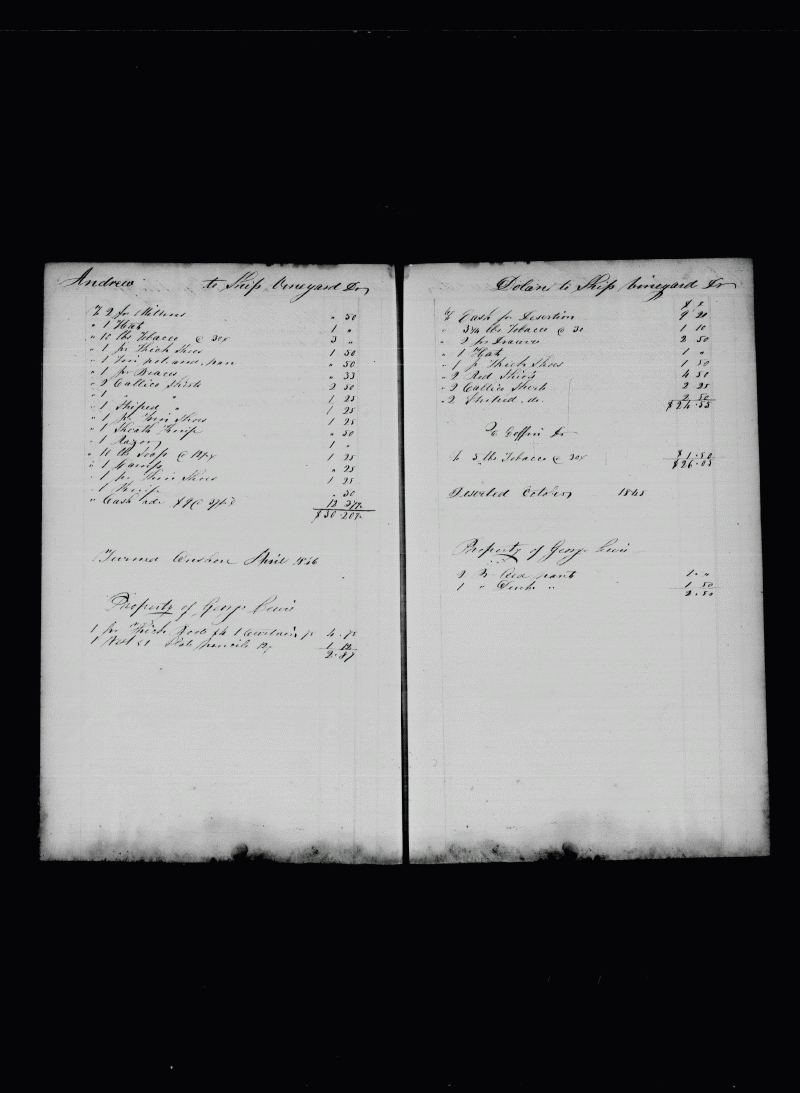 Andrew to Ship Vineyard Dr
To 2 pr Mittens " 50
" 1 Hat 1 "
" 10 lbs Tobacco @ 30x 3 "
" 1 pr Thick Shoes 1 50
" 1 Tin pot and pan " 50
" 1 pr Braces " 33
" 2 Callico Shirts 2 50
" 1 " " 1 25
" 1 Striped " 1 25
" 1 pr Thin Shoes 1 25
" 1 Sheath Knife " 50
" 1 Razor 1 "
" 10 lb Soap @ 1 25
" 1 " 25
" 1 pr Thin Shoes 1 25
" 1 Knife " 50
" Cash adv $9 @ 12 37½
$30.20½
Turned Onshore April 1846
Property of George Lewis
1 pr Thick 1 4.75
1 Vest & 1 Slate pencils 1 12
2.87
Dolan to Ship Vineyard Dr
$ c
To Cash for Desertion 9 20
" 3¾ lbs Tobacco @ 30 1 10
" 2 pr Drawers 2 50
" 1 Hat 1 "
" 1 pr Thick Shoes 1 50
" 2 Red Shirts 4 50
" 2 Callico Shirts 2 25
" 2 Striped do. 2 50
$24.55
To Coffin Dr
To 5 lbs Tobacco @ 30x $1.50
$26.05
Deserted October 1845
Property of George Lewis
2 Pr pants 1. "
1 " Duck " 1 50
2.50